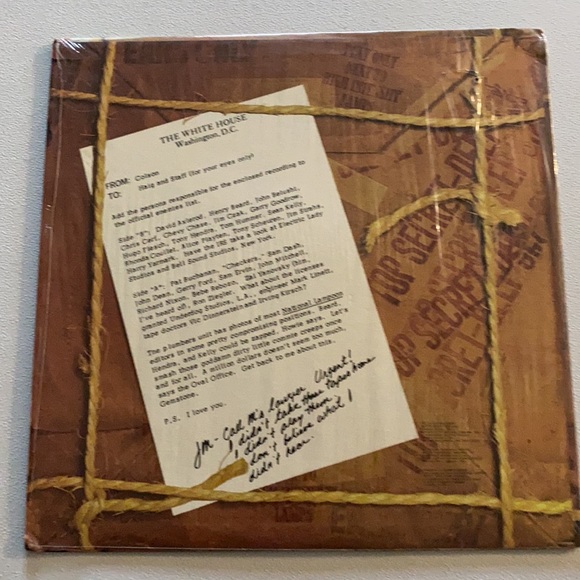 THE WHITE HOUSE
Washington, D.C.
FROM: Colson
TO: Haig and Staff (for your eyes only)
Add the persons responsible for the enclosed recording to
the official enemies list.
Side "B": David Axlerod, Henry Beard, John Belushi,
Chris Cerf, Chevy Chase, Jim Czak, Garry Goodrow,
Hugo Flesch, Tony Hendra, Tom Hummer, Sean Kelly,
Rhonda Coullet, Alice Playten, Tony Scheuren, Jim Strahs,
Harry Yarmark. Have the IRS take a look at Electric Lady
Studios and Bell Sound Studios, New York.
Side "A": Pat Buchanan, "Checkers," Sam Dash,
John Dean, Gerry Ford, Sam Ervin, John Mitchell,
Richard Nixon, Bebe Rebozo, Zal Yanovsky (him,
I've heard of), Ron Ziegler. What about the licenses
granted Underdog Studios, L.A., engineer Mark Linett,
tape doctors Vic Dinnerstein and Irving Kirsch?
The plumbers unit has photos of most National Lampoon
editors in some pretty compromising positions. Beard,
Hendra, and Kelly could be zapped, Howie says. Let's
smash those goddamn dirty little commie creeps once
and for all. A million dollars doesn't seem too much,
says the Oval Office. Get back to me about this.
Gemstone.
P.S. I love you.
JM - Call M's lawyer Urgent!
I didn't take these tapes home
I didn't play them.
don't believe what I
didn't hear.
TOP SECRET
TOP SECRET